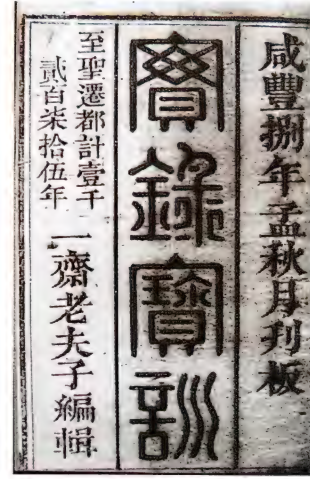 咸豐捌年孟秋月刊板
實錄寶訓
至聖遷都計壹千
貳百柒拾伍年
一齋老夫子編輯